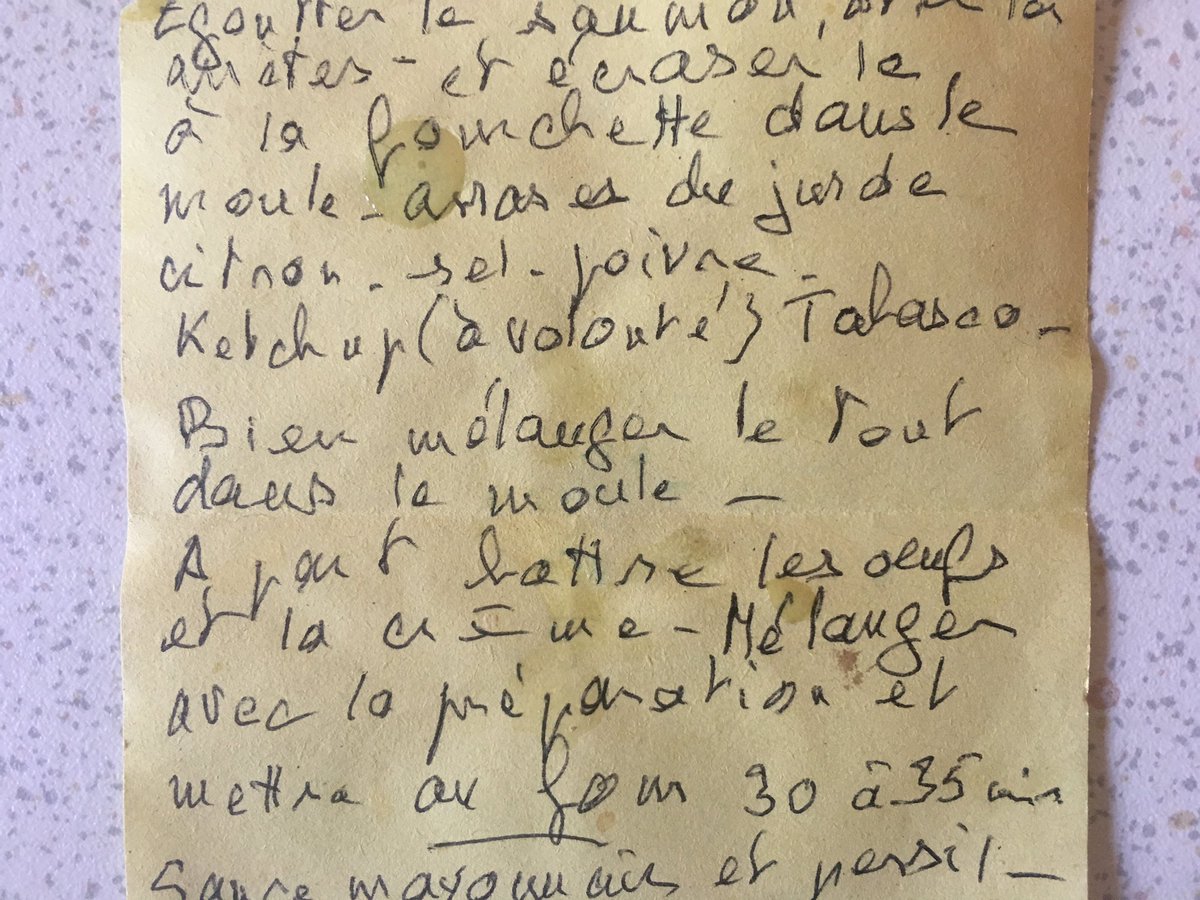 Egoutter le saumon, oter la
arêtes - et écraser le
à la fourchette dans le
moule - arroser du jus de
citron - sel - poivre -
Ketchup (à volonté) Tabasco -
Bien mélanger le tout
dans le moule -
A part battre les oeufs
et la crème - Mélanger
avec la préparation et
mettre au four 30 à 35 min
Sauce mayonnais et persil -